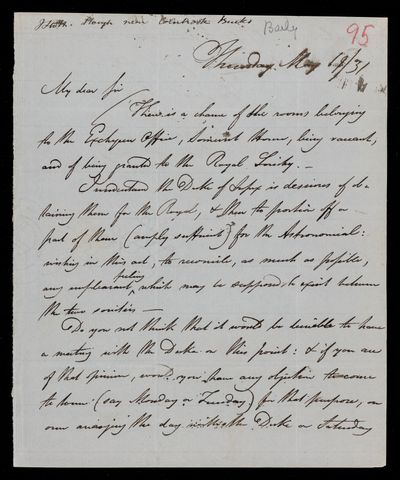 Slough near Bucks Baily 95
Thursday, May 19/31
My dear Sir
There is a chance of the rooms belonging
to the Exchequer Office, Somerset House, being vacant,
and of being granted to the Royal Society. —
I understand the Duke of Sussex is desirous of ob-
taining them for the Royal, & then to portion off a
part of them (amply sufficient) for the Astronomical:
wishing in this act, to reconcile, as much as possible,
any unpleasant feeling which may be supposed to exist between
the two societies —
Do you not think that it would be desirable to have
a meeting with the Duke on this point: & if you are
of that opinion, would you have any objection to come
to town (say Monday or Tuesday) for that purpose, on
our arranging the day with the Duke on Saturday